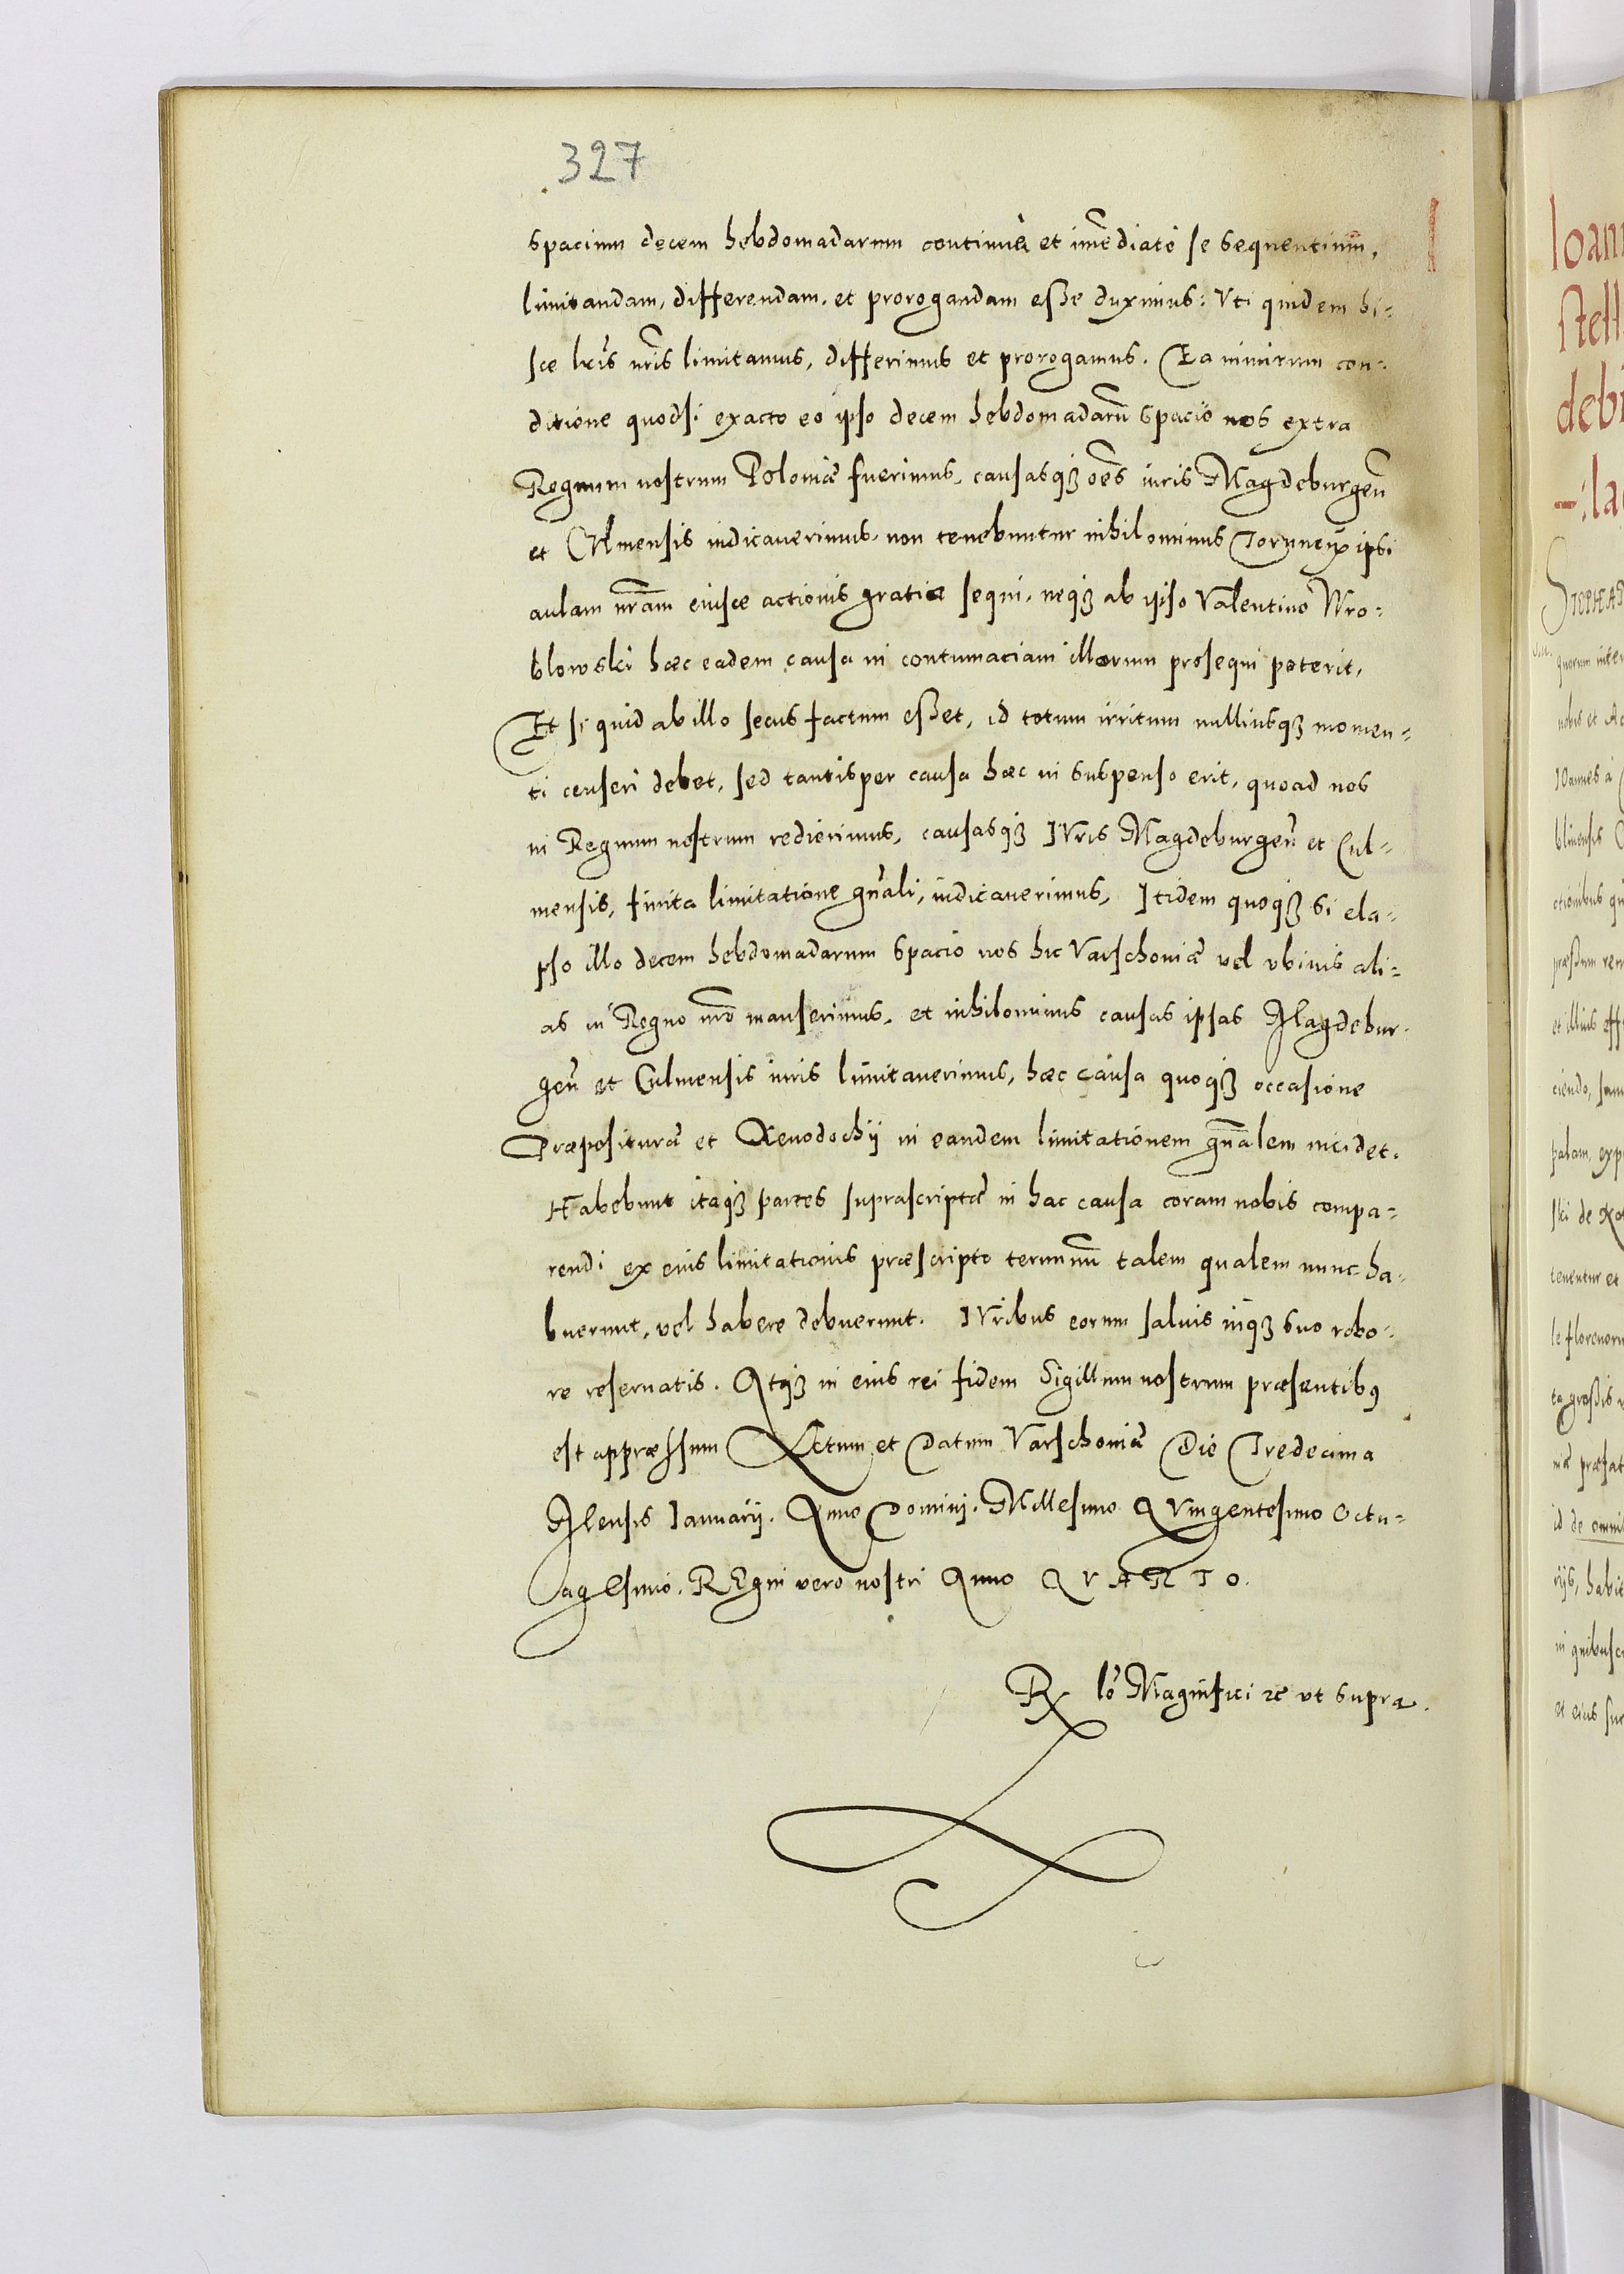 327
spacium decem hebdomadarum continuè et im̃ediatè se sequentium,
limitandam, differendam, et prorogandam esse duximus: Vti quidem hi=
sce lr̃is nr̃is limitamus, differimus et prorogamus. Ea nimirum con=
ditione quodsi exacto eo ipso decem hebdomadarũ spacio nos extra
Regnum nostrum Poloniæ fuerimus, causasq₃ oẽs iuris Magdeburgeñ
et Culmensis iudicauerimus, non tenebuntur nihilominus Toruneñ ipsi
aulam nr̃am eiusce actionis gratia sequi, neq₃ ab ipso Valentino Wro=
blowski hæc eadem causa in contumaciam illorum prosequi poterit,
Et si quid ab illo secus factum esset, id totum irritum nulliusq₃ momen=
ti censeri debet, sed tantisper causa hæc in suspenso erit, quoad nos
in Regnum nostrum redierimus, causasq₃ IVris Magdeburgeñ et Cul=
mensis, finita limitatione gñali, iudicauerimus, Itidem quoq₃ si ela=
pso illo decem hebdomadarum spacio nos hic Varschouiæ vel vbiuis ali=
as in Regno nr̃o manserimus, et nihilominus causas ipsas Magdebur=
geñ et Culmensis iuris limitauerimus, hæc causa quoq₃ occasione
Præposituræ et Xenodochij in eandem limitationem gñalem incidet.
Habebunt itaq₃ partes suprascriptæ in hac causa coram nobis compa=
rendi ex eius limitationis præscripto terminũ talem qualem nunc ha=
buerunt, vel habere debuerunt. IVribus eorum saluis inq₃ suo robo=
re reseruatis. Atq₃ in eius rei fidem Sigillum nostrum præsentib9
est appræssum Actum et Datum Varschouiæ Die Tredecima
Mensis Ianuarij. Anno Domini. Millesimo QVingentesimo Octu=
agesimo. REgni vero nostri Anno QVARTO.
Rx lõ Magnifici ꝛc vt supra.
Ioan
stell
debi